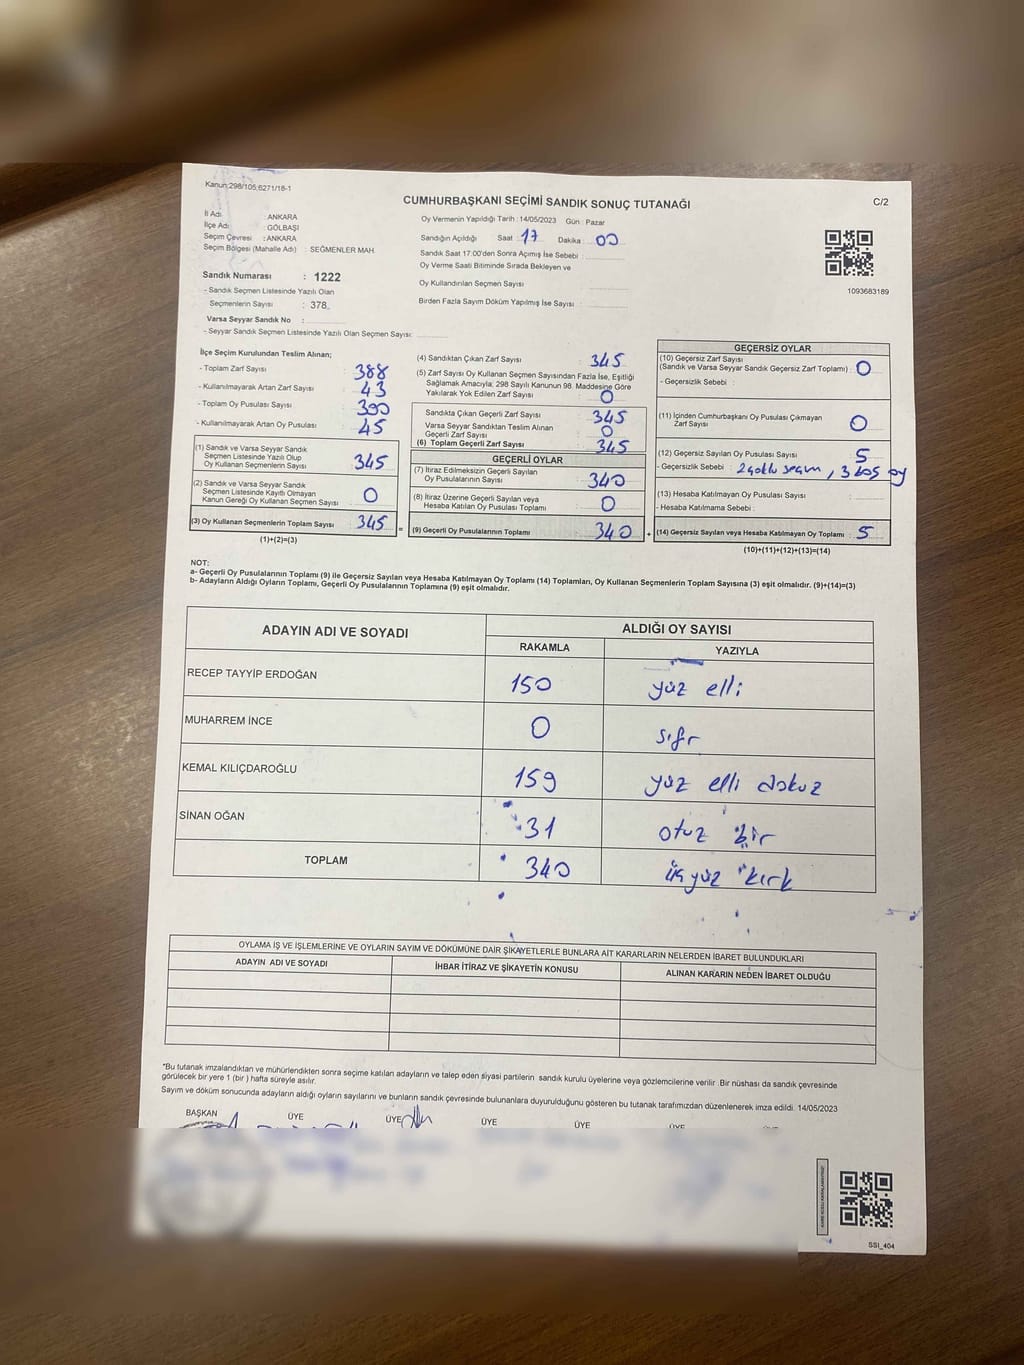 Kanun:298/105;6271/18-1
CUMHURBAŞKANI SEÇİMİ SANDIK SONUÇ TUTANAĞI
C/2
İl Adı : ANKARA
İlçe Adı : GÖLBAŞI
Seçim Çevresi : ANKARA
Seçim Bölgesi (Mahalle Adı) : SEĞMENLER MAH.
Sandık Numarası : 1222
- Sandık Seçmen Listesinde Yazılı Olan
Seçmenlerin Sayısı : 378
Varsa Seyyar Sandık No :
- Seyyar Sandık Seçmen Listesinde Yazılı Olan Seçmen Sayısı:
Oy Vermenin Yapıldığı Tarih : 14/05/2023 Gün : Pazar
Sandığın Açıldığı Saat : 17 Dakika : 00
Sandık Saat 17:00'den Sonra Açımış İse Sebebi :
Oy Verme Saati Bitiminde Sırada Bekleyen ve
Oy Kullandırılan Seçmen Sayısı :
Birden Fazla Sayım Döküm Yapılmış İse Sayısı :
1093683189
İlçe Seçim Kurulundan Teslim Alınan;
- Toplam Zarf Sayısı : 388
- Kullanılmayarak Artan Zarf Sayısı : 43
- Toplam Oy Pusulası Sayısı : 390
- Kullanılmayarak Artan Oy Pusulası : 45
(1) Sandık ve Varsa Seyyar Sandık
Seçmen Listesinde Yazılı Olup
Oy Kullanan Seçmenlerin Sayısı : 345
(2) Sandık ve Varsa Seyyar Sandık
Seçmen Listesinde Kayıtlı Olmayan
Kanun Gereği Oy Kullanan Seçmen Sayısı : 0
(3) Oy Kullanan Seçmenlerin Toplam Sayısı : 345
(1)+(2)=(3)
(4) Sandıktan Çıkan Zarf Sayısı : 345
(5) Zarf Sayısı Oy Kullanan Seçmen Sayısından Fazla İse, Eşitliği
Sağlamak Amacıyla; 298 Sayılı Kanunun 98. Maddesine Göre
Yakılarak Yok Edilen Zarf Sayısı : 0
Sandıkta Çıkan Geçerli Zarf Sayısı : 345
Varsa Seyyar Sandıktan Teslim Alınan
Geçerli Zarf Sayısı : 0
(6) Toplam Geçerli Zarf Sayısı : 345
GEÇERLİ OYLAR
(7) İtiraz Edilmeksizin Geçerli Sayılan
Oy Pusulalarının Sayısı : 340
(8) İtiraz Üzerine Geçerli Sayılan veya
Hesaba Katılan Oy Pusulası Toplamı : 0
= (9) Geçerli Oy Pusulalarının Toplamı : 340 +
GEÇERSİZ OYLAR
(10) Geçersiz Zarf Sayısı
(Sandık ve Varsa Seyyar Sandık Geçersiz Zarf Toplamı) : 0
- Geçersizlik Sebebi :
(11) İçinden Cumhurbaşkanı Oy Pusulası Çıkmayan
Zarf Sayısı : 0
(12) Geçersiz Sayılan Oy Pusulası Sayısı : 5
- Geçersizlik Sebebi : 2 çoklu seçim, 3 boş oy
(13) Hesaba Katılmayan Oy Pusulası Sayısı :
- Hesaba Katılmama Sebebi :
(14) Geçersiz Sayılan veya Hesaba Katılmayan Oy Toplamı : 5
(10)+(11)+(12)+(13)=(14)
NOT:
a- Geçerli Oy Pusulalarının Toplamı (9) ile Geçersiz Sayılan veya Hesaba Katılmayan Oy Toplamı (14) Toplamları, Oy Kullanan Seçmenlerin Toplam Sayısına (3) eşit olmalıdır. (9)+(14)=(3)
b- Adayların Aldığı Oyların Toplamı, Geçerli Oy Pusulalarının Toplamına (9) eşit olmalıdır.
ADAYIN ADI VE SOYADI ALDIĞI OY SAYISI
RAKAMLA YAZIYLA
RECEP TAYYİP ERDOĞAN 150 yüz elli
MUHARREM İNCE 0 sıfır
KEMAL KILIÇDAROĞLU 159 yüz elli dokuz
SİNAN OĞAN 31 otuz bir
TOPLAM 340 üç yüz kırk
OYLAMA İŞ VE İŞLEMLERİNE VE OYLARIN SAYIM VE DÖKÜMÜNE DAİR ŞİKAYETLERLE BUNLARA AİT KARARLARIN NELERDEN İBARET BULUNDUKLARI
ADAYIN ADI VE SOYADI İHBAR İTİRAZ VE ŞİKAYETİN KONUSU ALINAN KARARIN NEDEN İBARET OLDUĞU
*Bu tutanak imzalandıktan ve mühürlendikten sonra seçime katılan adayların ve talep eden siyasi partilerin sandık kurulu üyelerine veya gözlemcilerine verilir .Bir nüshası da sandık çevresinde
görülecek bir yere 1 (bir ) hafta süreyle asılır.
Sayım ve döküm sonucunda adayların aldığı oyların sayılarını ve bunların sandık çevresinde bulunanlara duyurulduğunu gösteren bu tutanak tarafımızdan düzenlenerek imza edildi. 14/05/2023
BAŞKAN ÜYE ÜYE ÜYE ÜYE ÜYE
SSI_404